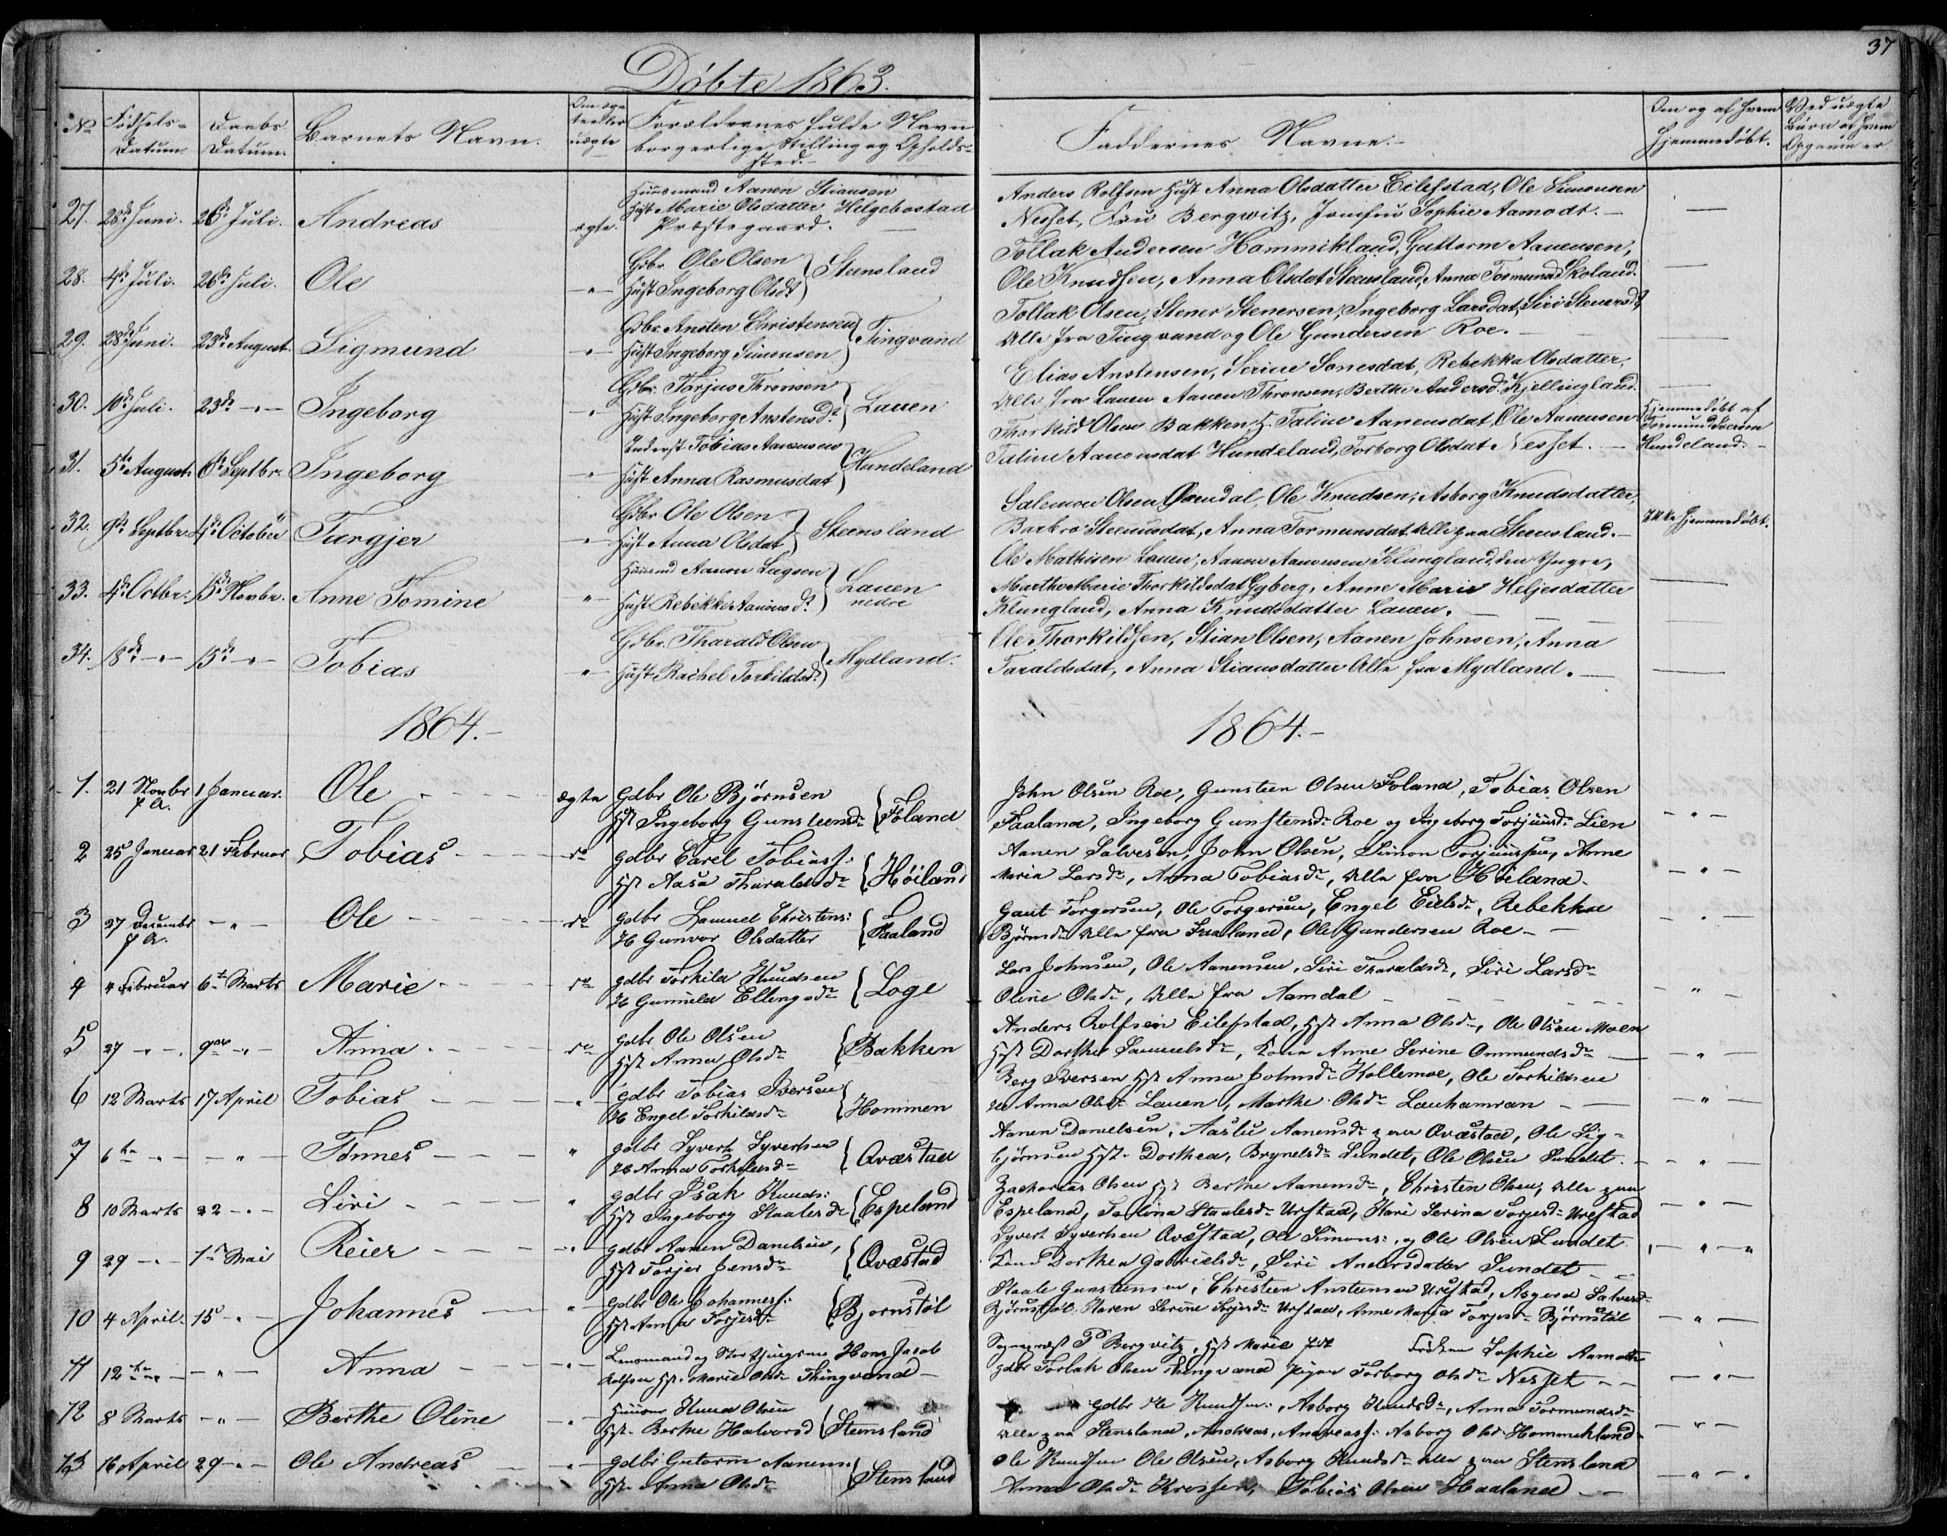 37
Döbte 1863.
No
Fødsels-Datum.
Daabs Datum.
Barnets Navn.
Om ægte eller uægte
Forældrenes fulde Navn borgerlige Stilling og Opholds-sted.
Faddernes Navne.
Om og af hvem hjemmedøbt.
Ved uægte Børn
27. 28de Juni. 26de Juli. Andreas ægte.
Huusmand Aanen Stiansen
Hust Marie Olsdatter Helgebostad
Præstegaard.
Anders Rolfsen Hust Anna Olsdatter Eilefstad, Ole Simonsen
Nesset, Fru Bergwitz, Jomfru Sophie Aamodt.
28. 4de Juli. 26de Juli. Ole
Gdbr. Ole Olsen
Hust Ingeborg Olsdt } Steensland
Tollak Andersen Hommikland, Guttorm Aanensen,
Ole Knudsen, Anna Olsdat Steensland, Anna Tormunsd Skoland.
29. 28de Juni. 23de August. Sigmund
Gdbr. Ansten Christensen
Hust Ingeborg Simonsen } Tingvand
Tollak Olsen, Stener Stenersen, Ingeborg Larsdat, Siri Stenersdt,
Alle fra Tingvand og Ole Gundersen Roe.
30. 10de Juli. 23de - " - Ingeborg
Gdbr. Tarjus Thronsen
Hust Ingeborg Anstensdt. } Lauen
Elias Anstensen, Serine Tonesdat, Rebekka Olsdatter,
Alle fra Lauen Aanen Thronsen, Berthe Andersd. Kjellingland.
31. 5te August. 6te Septbr. Ingeborg
Inderst Tobias Aanensen
Hust Anna Rasmusdat } Hundeland
Thorkild Olsen Bakken, Taline Aanensdat, Ole Aanensen
Taline Aanensdat Hundeland, Torborg Olsdat Nesset.
Hjemmedøbt af
Tormund
Hundeland.
32. 9de Septbr. 4de October Targjer
Gdbr. Ole Olsen
Hust Anna Olsdat } Steensland
Salemon Olsen Omdal, Ole Knudsen, Asborg Knudsdatter,
Barbro Steensdat, Anna Tormunsdat Alle paa Steensland.
Ikke hjemmedøbt.
33. 4de Octbr. 15de Novbr. Anne Tomine
Huusmd Aanon Lagsen
Hust Rebekke Aanensdt. } Lauen nedre
Ole Mathisen Lauen, Aanon Aanonsen Klungland den Yngre,
Marthe Marie Thorkildsdat Gyberg, Anne Marie Heljesdatter
Klungland, Anna Knudsdatter Lauen.
34. 18de - " - 15de - " - Tobias
Gdbr. Tharald Olsen
Hust Rachel Torkildsdt. } Mydland.
Ole Thorkildsen, Stian Olsen, Aanen Johnsen, Anna
Taraldsdat, Anna Stiansdatter Alle fra Mydland.
1864.
1864.
1. 21 Novbr f. A. 1 Januar. Ole ægte
Gdbr Ole Bjørnsen
Hst Ingeborg Gunsteensdr { Foland
John Olsen Roe, Gunsteen Olsen Foland, Tobias Olsen
Faaland, Ingeborg Gunstensdr Roe og Ingeborg Torjuusdr Lien
2 25 Januar 21 Februar Tobias do
gdbr Carel Tobiass:
Hst Aasa Tharaldsdr { Høiland
Aanen Salvesen, John Olsen, Simon Torjuussen, Anne
Maria Larsdr, Anna Tobiasdr, Alle fra Høiland.
3 27 Decembr f. A. - " - Ole do
gdbr Samuel Christens:
H Gunvor Olsdatter { Faaland
Gaut Torgersen, Ole Torgersen, Engel Eielsdr, Rebekka
Bjørnsdr Alle fra Faaland, Ole Gundersen Roe
4 4 Februar 6te Marts Marie do
gdbr Torkild Knudsen
H Gunnild Ellingsdr { Loge
Lars Johnsen, Ole Aanensen, Siri Tharaldsdr, Siri Larsdr
Oline Olsdr, Alle fra Aamdal
5 27 - " - Anna do
gdbr Ole Olsen
Hst Anna Olsdr { Bakken
Anders Rolfsen Eilefstad, Hst Anna Olsdr, Ole Olsen Moen
Hst Dorthea Samuelsdr, Kona Anne Serine Ommundsdr
6 12 Marts 17 April Tobias
gdbr Tobias Iversen
H Engel Torkildsdr { Hommen
Berg Iversen Hst Anna Johnsdr Hollemoe, Ole Torkildsen
H Anna Olsdr Lauen, Marthe Olsdr Lauhamran
7 6te - " - - " - Tønnes "
gdbr Syvert Syvertsen
H Anna Torkildsdr { Qvæstad
Aanen Danielsen, Aaslu Aanensdr paa Qvæstad, Ole Sig-
bjørnsen Hst. Dorthea, Brynelsdr Sundet, Ole Olsen Sundet.
8 10 Marts 22 - " - Siri "
gdbr Isak Knuds:
Hst Ingeborg Staalesdr { Espeland
Zacharias Olsen Hst Berthe Aanensdr, Christen Olsen, Alle paa
Espeland, Talina Staalesdr Urstad, Kari Serina Torjesdr Urestad
9 29 - " - 1te Mai Reier
gdbr Aanen Danielsen,
Hst Torjer Jensdr { Qvæstad
Syvert Syvertsen Qvæstad, Ole Simons:, og Ole Olsen Sundet
Kone Dorthea Gabrielsdr, Siri Andersdatter Sundet
10 4 April 15 - " - Johannes "
gdbr Ole Johanness:
Hst Anna Torjesdr { Bjørnstøl
Staale Gunstensen, Christen Anstensen Urstad, Asgerd Salvesdr
Bjørnstøl, Karen Serine Torjesdr Urstad, Anne Maria Torjesdr Bjørnstøl
11 12te - " - - " - Anna
Lensmand og Stortingsm: Hans Jacob
Rolfsen Hst. Marie Olsdr Thingvand
Sogneprest P Bergvitz, Hst Marie Frøken Sophie Aamodt
gdbr Torlak Olsen Thingvand Pigen Torborg Olsdr Nesset
12 8 Marts - " - Berthe Oline
Huusm Knud Olsen
Hst. Berthe Halvorsd { Steensland
Gdbr Ole Knudsen, Asborg Knudsdr, Anna Tormundsdr
Alle paa Stensland, Andreas Andreass: Asborg Olsdr Hommekland
13 16 April 29 - " - Ole Andreas
gdbr Gutorm Aanens:
Hst. Anna Olsdr { Stensland
Ole Knudsen Ole Olsen, Asborg Knudsdr Alle paa Stensland
Anna Olsdr Krossen, Tobias Olsen Haaland